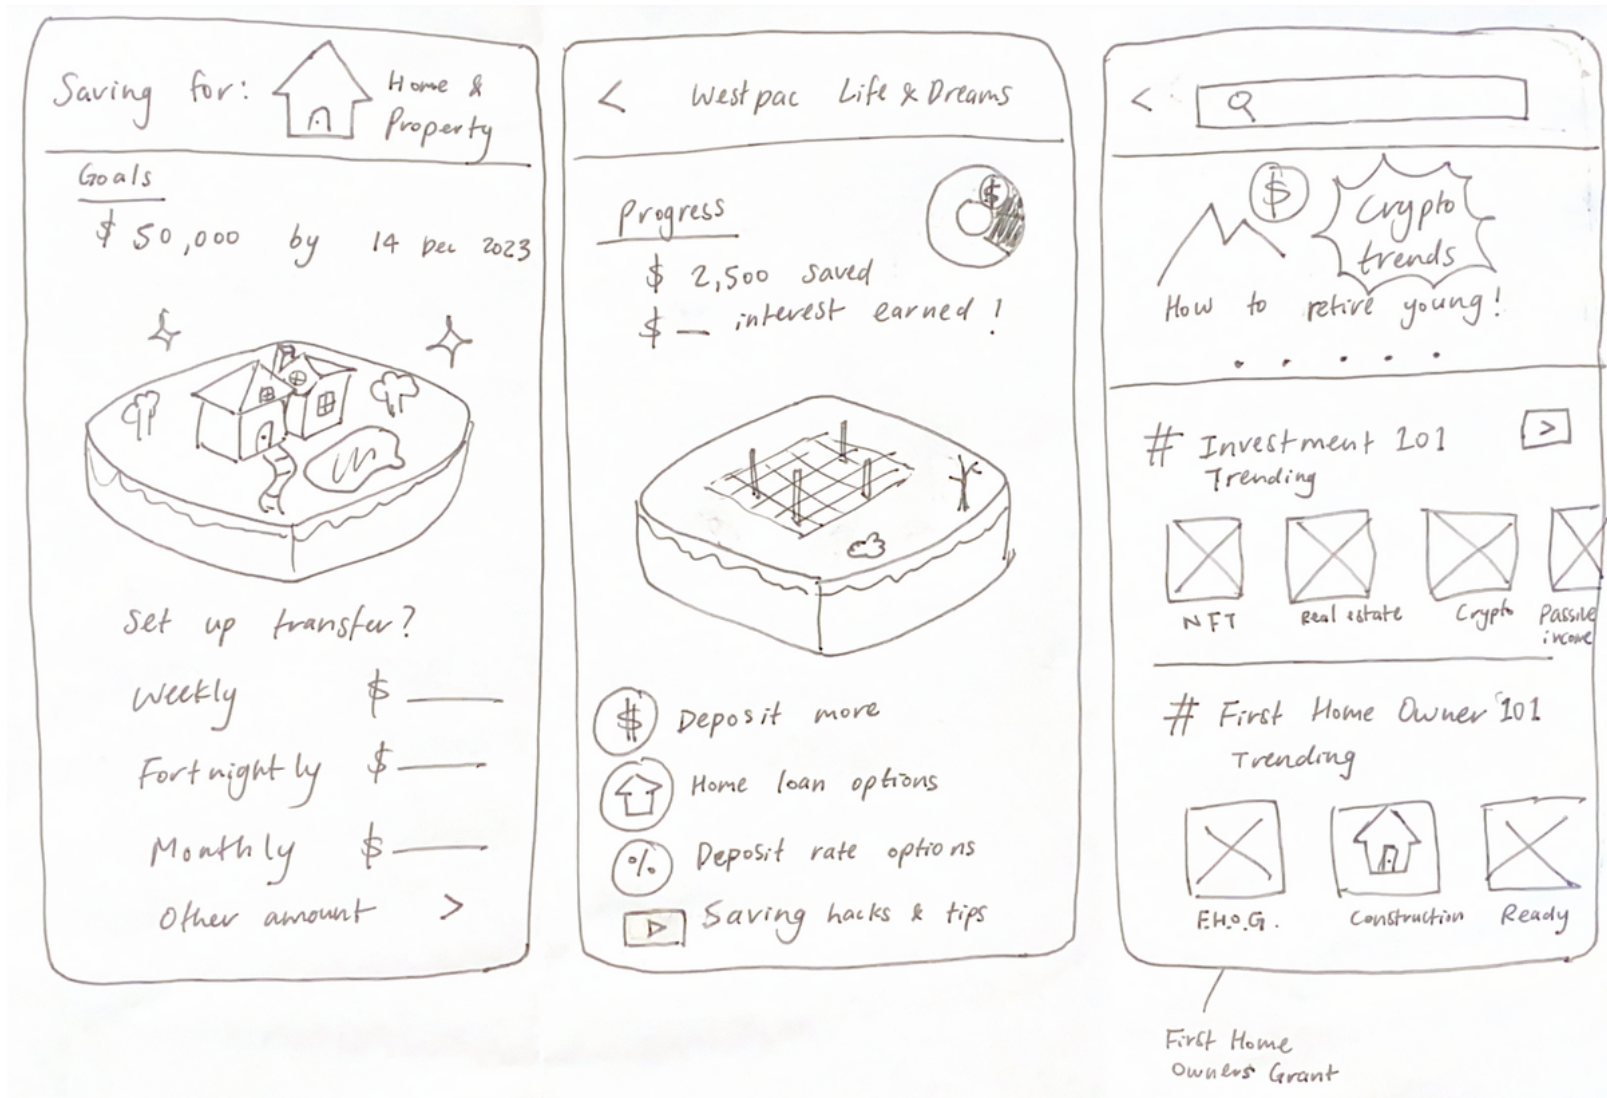 Saving for:
Home &
Property
Goals
$ 50,000 by 14 Dec 2023
Set up transfer?
Weekly $
Fortnightly $
Monthly $
Other amount >
< Westpac Life & Dreams
Progress
$
$ 2,500 saved
$ — interest earned!
$ Deposit more
Home loan options
% Deposit rate options
Saving hacks & tips
<
$
Crypto
trends
How to retire young!
# Investment 101
Trending
>
NFT
Real estate
Crypto
Passive
income
# First Home Owner 101
Trending
F.H.O.G.
Construction
Ready
First Home
Owners Grant